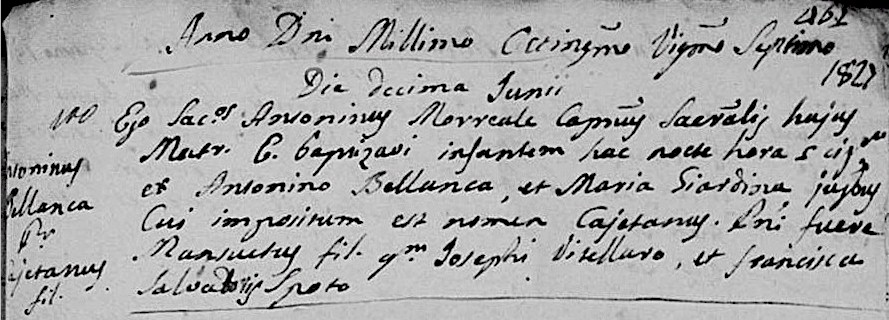 461
Anno Dni Millimo Octingmo Vigmo Septimo
1827
Die decima Junii
Ego Sacos Antoninus Morreale Capnus Sacralis hujus
Matr. E. baptizavi infantem hac nocte hora 5
ex Antonino Bellanca, et Maria Giardina jugbus
Cui impositum est nomen Cajetanus. Pni fuere
Mansuetus fil. qm Josephi Vitellaro, et Francisca
Salvatoris Spoto
ntoninus
Bellanca
Pr
ajetanus
fil.